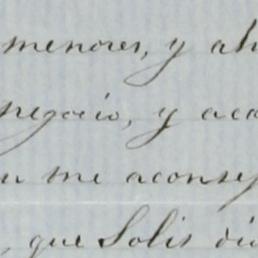 menores, y ah
negocio, y aco
u me aconsej
, que Solis di